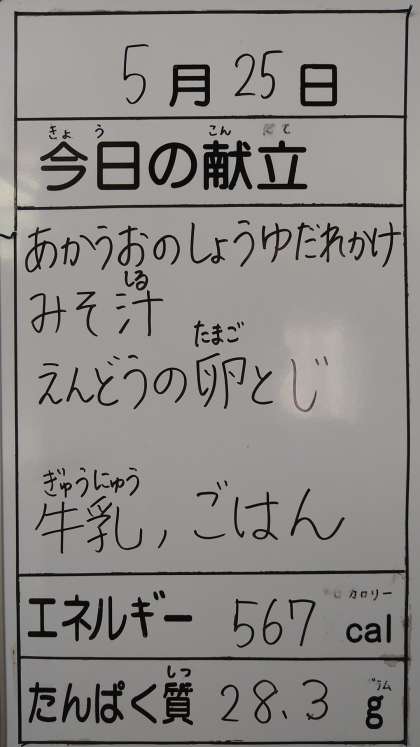 5月25日
きょう こん だて
今日の献立
あかうおのしょうゆだれかけ
しる
みそ汁
たまご
えんどうの卵とじ
ぎゅうにゅう
牛乳,ごはん
カロリー
エネルギー 567 cal
しつ グラム
たんぱく質 28.3 g